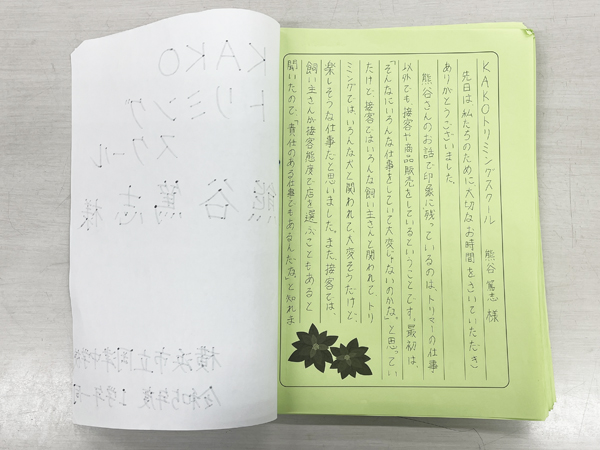 KAKO
トリミング
スクール
熊谷 篤志 様
横浜市立岡津中学
令和5年度 1学年
KAKOトリミングスクール 熊谷 篤志 様
先日は私たちのために大切なお時間をさいていただき
ありがとうございました。
熊谷さんのお話で印象に残っているのは、トリマーの仕事
以外でも、接客や商品販売をしているということです。最初は、
「そんなにいろんな仕事をしていて大変じゃないのかな。」と思ってい
たけど、接客ではいろんな飼い主さんと関われて、トリ
ミングではいろんな犬と関われて、大変そうだけど
楽しそうな仕事だと思いました。また、接客では、
飼い主さんが接客態度で店を選ぶこともあると
聞いたので、「責任のある仕事でもあるんだな。」と知れま